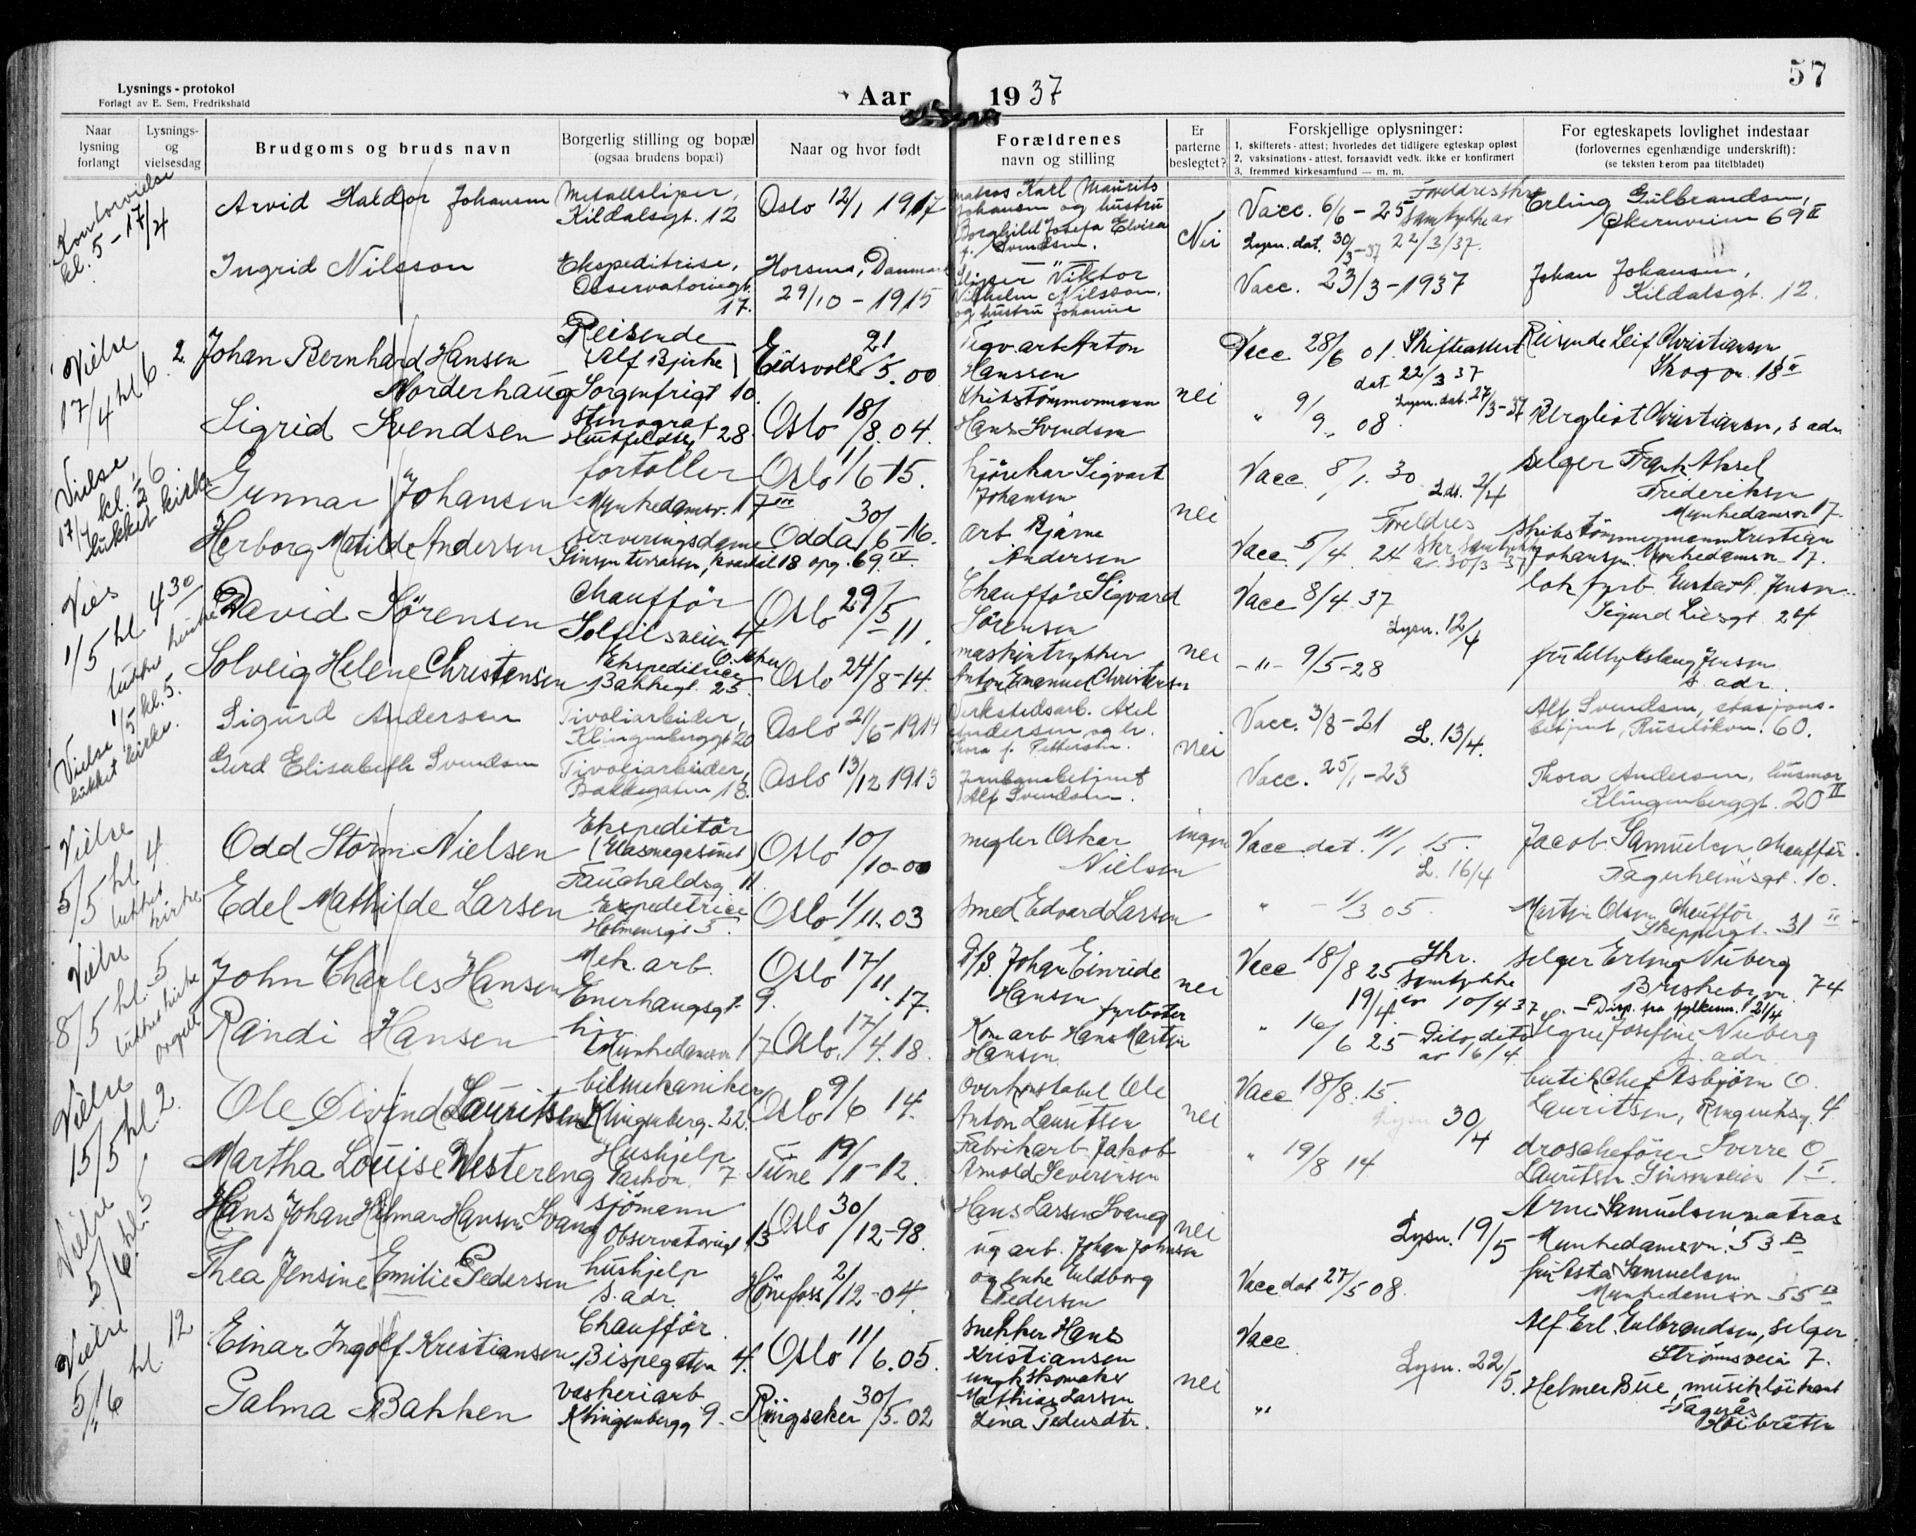 Lysnings - protokol
Forlagt av E. Sem, Fredrikshald
Aar 1937
57
Naar lysning forlangt
Lysnings- og vielsesdag
Brudgoms og bruds navn
Borgerlig stilling og bopæl (ogsaa brudens bopæl)
Naar og hvor født
Forældrenes navn og stilling
Er parterne beslegtet?
Forskjellige oplysninger:
1, skifterets-attest; hvorledes det tidligere egteskap opløst
2, vaksinations-attest, forsaavidt vedk. ikke er konfirmert
3, fremmed kirkesamfund — m. m.
For egteskapets lovlighet indestaar
(forlovernes egenhændige underskrift):
(se teksten herom paa titelbladet)
Kontorvielse
kl. 5 - 17/4
Arvid Haldor Johansen
Metallsliper,
Kildalsgt. 12
Oslo 12/1 1917
matros Karl Maurits
Johansen og hustru
Borghild Josefa Elvira
f. Svendsen.
Nei
Vacc. 6/6 - 25 Foreldres skr.
Samtykke av
Lysn. dat. 30/3-37 22/3/37.
Erling Gulbrandsen,
Økernveien 69 II
Ingrid Nilsson
Ekspeditrise,
Observatoriegt.
17.
Horsens, Danmark
29/10 - 1915
Sliper Viktor
Vilhelm Nilsson,
og hustru Johanne
Vacc. 23/3 - 1937
Johan Johansen,
Kildalsgt. 12.
Vielse
17/4 kl 6
2.
Johan Bernhard Hansen
Norderhaug
Reisende
(Alf Bjerke)
Sorgenfrigt 10.
Eidsvoll 21/5.00
Anton
Hanssen
Skibstømmermann
nei
Vacc 28/6 01. Skifteattest
dat. 22/3 37
Lysn. dat. 27/3-37
Reisende Leif Christiansen
Skogvn. 18 II
Sigrid Svendsen
Stenograf
Huitfeldtsg 28.
Oslo 18/8. 04.
Hans Svendsen
" 9/9 08.
Bergliot Christiansen, s adr.
Vielse
17/4 kl. 6
lukket kirke
Gunnar Johansen
fortoller
Munkedamsv. 17 III
Oslo 1/6 15.
kjørekar Sigvart
Johansen
nei
Vacc 8/1. 30
2/4
selger Frank Aksel
Frederiksen
Munkedamsvn 17.
Herborg Matilde Andersen
serveringsdame
Sinsenterrassen, kvartal 18 opg. 69 IV.
Odda 30/6-16.
arb. Bjarne
Andersen
Vacc 5/4 24
Foreldres
skr samtykke
av 30/3-37
Skibstømmermann Kristian
Johansen Munkedamsvn 17.
Vies
1/5 kl 4 30
lukket kirke
David Sørensen
Chauffør
Solfilsveien 4
Ø. Aker
Oslo 29/5 - 11.
Chauffør Sigvard
Sørensen
nei
Vacc 8/4. 37
Lysn. 12/4
lok. fyrb. Gustav A. Jensen
Sigurd Liesgt. 24
Solveig Helene Christensen
Ekspeditrice
Bakkegt. 25.
Oslo 24/8-14.
maskintrykker
Anton Emanuel Christensen
-"- 9/5-28
fru Jensen
s. adr.
Vielse 1/5 kl. 5.
lukket kirke.
Sigurd Andersen
Tivoliarbeider,
Klingenberggt 20
Oslo 21/6 - 1914
Verkstedsarb. Axel
Andersen og h.
Thora f. Pettersen.
nei
Vacc. 3/8 - 21
L. 13/4.
Alf Svendsen, stasjons-
betjent, Ruseløkvn. 60.
Gerd Elisabeth Svendsen
Tivoliarbeider,
Bakkegaten 18.
Oslo 13/12 1913
Jernbanebetjent
Alf Svendsen.
Vacc. 25/1 - 23
Thora Andersen, husmor
Klingenberggt. 20 II
Vielse
5/5 kl 4.
lukket
kirke
Odd Storm Nielsen
Ekspeditør
(Glasmagasinet)
Fauchaldsg 11.
Oslo 10/10-00
megler Oskar
Nielsen
ingen
Vacc dat. 11/1 15.
L. 16/4
Jacob Samuelsen, chauffør
Fagerheimsgt. 10.
Edel Mathilde Larsen
Expeditrice
Holmensgt 5.
Oslo 1/11. 03
smed Edvard Larsen
" - 1/3 05 -
Martin Olsen, chauffør
Skippergt. 31 II
Vielse
8/5 kl. 5
lukket kirke
orgel
John Charles Hansen
Mek. arb.
Enerhaugsgt. 9.
Oslo 17/11. 17.
Johan Einride
Hansen
fyrbøter
nei
Vacc 18/8 25 Skr.
samtykke
19/4 av 10/4 37
selger Erling Nuberg
74
- Disp. fra fylkesm. 21/4
Randi Hansen
hjv.
Munkedamsvn 17
Oslo 17/4. 18.
Kom arb Hans Martin
Hansen
" 16/6 25 - Dito dito
av 16/4
Signe Josefine Nuberg
s. adr.
Vielse
15/5 kl. 2.
Ole Øivind Lauritsen
bilmekaniker
Klingenberg. 22.
Oslo 9/6 14.
Overkonstabel Ole
Anton Lauritsen
nei
Vacc 18/8. 15.
Lysn 30/4
butikchef Asbjørn O.
Lauritsen, Ringeriksg. 4
Martha Louise Westereng
Hushjelp
Parkvn. 7
Tune 19/11-12.
Fabrikarb Jakob
Arnold Severinsen
" 19/8 14
droschefører Sverre O
Lauritsen. Sinsenveien 1 I.
Vielse
5/6 kl. 5
Hans Johan Hilmar Hansen Svang
sjømann
Observatoriegt 13
Oslo 30/12-98.
Hans Larsen Svang
nei
Lysn. 19/5
Arne Samuelsen, matros
Munkedamsvn. 53 B
Thea Jensine Emilie Pedersen
hushjelp
s. adr.
Hønefoss 2/12-04.
ug arb. Johan Johnsen
og enke Guldborg
Pedersen
Vacc dat 27/5 08.
fru Asta Samuelsen
Munkedamsvn 55 B
Vielse
5/6 kl. 12
Einar Ingolf Kristiansen
Chauffør.
Bispegaten 4.
Oslo 11/6. 05.
snekker Hans
Kristiansen
nei
Vacc
Lysn. 22/5.
Alf Erl. Gulbrandsen, selger
Strømsveien 7.
Galma Bakken
vaskeriarb
Klingenbergg 9.
Ringsaker 30/5-02
ungk skomaker
Mathias Larsen
Lena Pedersdtr.
"
Helmer Bue, musikløitnant
Fagerås
Høibråten